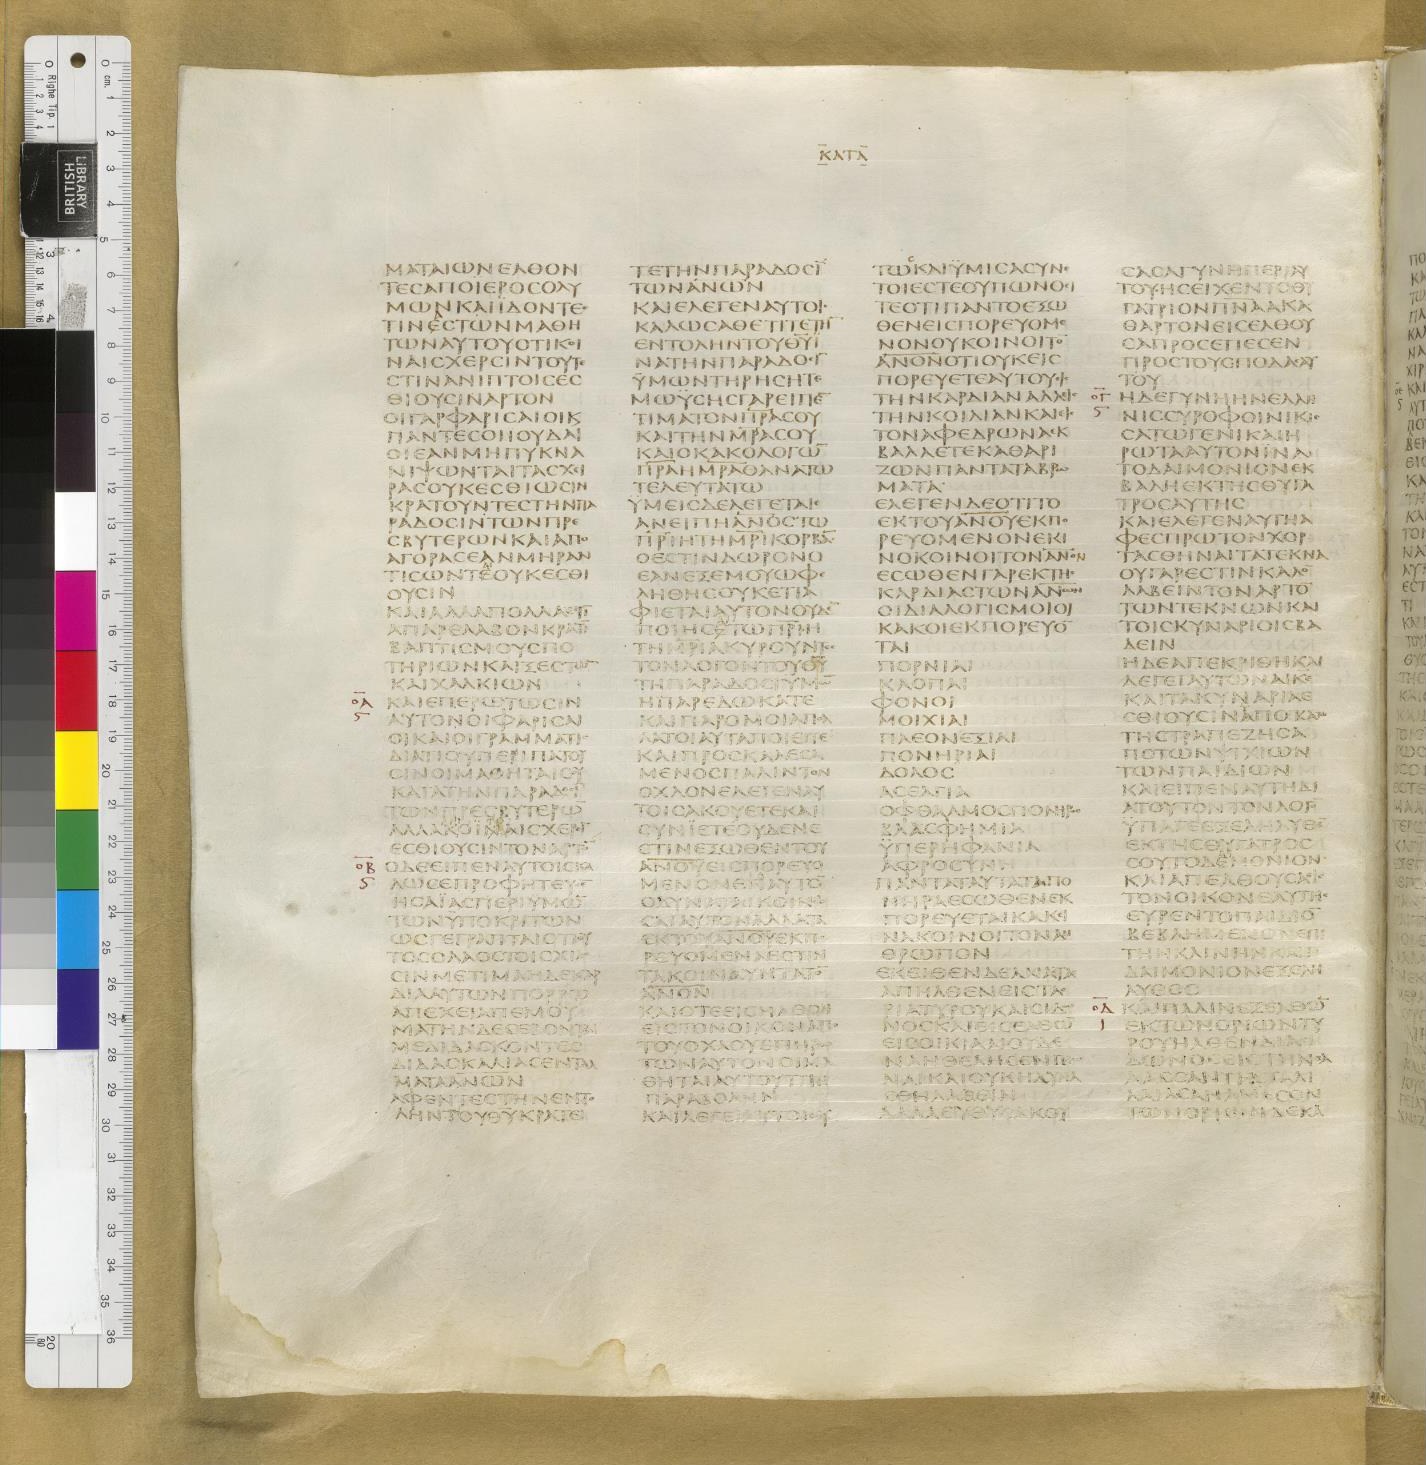 ΚΑΤΑ
ΜΑΤΑΙΩΝΕΛΘΟΝ
ΤΕСΑΠΟΙΕΡΟСΟΛΥ
ΜΩΝΚΑΙΪΔΟΝΤΕС
ΤΙΝΕСΤΩΝΜΑΘΗ
ΤΩΝΑΥΤΟΥΟΤΙΚΟΙ
ΝΑΙСΧΕΡСΙΝΤΟΥΤ
СΤΙΝΑΝΙΠΤΟΙСΕС
ΘΙΟΥСΙΝΑΡΤΟΝ
ΟΙΓΑΡΦΑΡΙСΑΙΟΙΚ
ΠΑΝΤΕСΟΙΙΟΥΔΑΙ
ΟΙΕΑΝΜΗΠΥΚΝΑ
ΝΙΨΩΝΤΑΙΤΑСΧΕΙ
ΡΑСΟΥΚΕСΘΙΩСΙΝ
ΚΡΑΤΟΥΝΤΕСΤΗΝΠΑ
ΡΑΔΟСΙΝΤΩΝΠΡΕ
СΒΥΤΕΡΩΝΚΑΙΑΠΟ
ΑΓΟΡΑСΕΑΝΜΗΡΑΝ
ΤΙСΩΝΤΕΟΥΚΕСΘΙ
ΟΥСΙΝ
ΚΑΙΑΛΛΑΠΟΛΛΑΕΣΤΙ
ΑΠΑΡΕΛΑΒΟΝΚΡΑΤΙ
ΒΑΠΤΙСΜΟΥСΠΟ
ΤΗΡΙΩΝΚΑΙΞΕСΤΩΝ
ΚΑΙΧΑΛΚΙΩΝ
ΟΑ
ΚΑΙΕΠΕΡΩΤΩСΙΝ
ΑΥΤΟΝΟΙΦΑΡΙСΑΙ
ΟΙΚΑΙΟΙΓΡΑΜΜΑΤΙС
ΔΙΑΤΙΟΥΠΕΡΙΠΑΤΟΥ
СΙΝΟΙΜΑΘΗΤΑΙСΟΥ
ΚΑΤΑΤΗΝΠΑΡΑΔΟСΙ
ΤΩΝΠΡΕСΒΥΤΕΡΩ
ΕСΘΙΟΥСΙΝΤΟΝΑΡΤΟ
ΟΒ
ΟΔΕΕΙΠΕΝΑΥΤΟΙСΚΑ
ΛΩСΕΠΡΟΦΗΤΕΥСΕ
ΗСΑΪΑСΠΕΡΙΥΜΩ
ΤΩΝΥΠΟΚΡΙΤΩΝ
ΩСΓΕΓΡΑΠΤΑΙΟΤΙΟΥ
ΤΟСΟΛΑΟСΤΟΙСΧΙΛΕ
СΙΝΜΕΤΙΜΑΗΔΕΚΑΡ
ΔΙΑΑΥΤΩΝΠΟΡΡΩ
ΑΠΕΧΕΙΑΠΕΜΟΥ
ΜΑΤΗΝΔΕСΕΒΟΝΤΑΙ
ΜΕΔΙΔΑСΚΟΝΤΕС
ΔΙΔΑСΚΑΛΙΑСΕΝΤΑΛ
ΜΑΤΑΑΝΩΝ
ΑΦΕΝΤΕСΤΗΝΕΝΤΟ
ΛΗΝΤΟΥΘΥΚΡΑΤΕΙ
ΤΕΤΗΝΠΑΡΑΔΟСΙ
ΤΩΝΑΝΩΝ
ΚΑΙΕΛΕΓΕΝΑΥΤΟΙС
ΚΑΛΩСΑΘΕΤΙΤΕΤΗ
ΕΝΤΟΛΗΝΤΟΥΘΥΪ
ΝΑΤΗΝΠΑΡΑΔΟСΙ
ΫΜΩΝΤΗΡΗСΗΤΕ
ΜΩΫСΗСΓΑΡΕΙΠΕ
ΤΙΜΑΤΟΝΠΡΑСΟΥ
ΚΑΙΤΗΝΜΡΑСΟΥ
ΚΑΙΟΚΑΚΟΛΟΓΩ
ΠΡΑΗΜΡΑΘΑΝΑΤΩ
ΤΕΛΕΥΤΑΤΩ
ΫΜΕΙСΔΕΛΕΓΕΤΑΙ
ΑΝΕΙΠΗΑΝΟСΤΩ
ΠΡΙΗΤΗΜΡΙΚΟΡΒΑ
ΟΕСΤΙΝΔΩΡΟΝΟ
ΕΑΝΕΞΕΜΟΥΩΦΕ
ΛΗΘΗСΟΥΚΕΤΙΑ
ΦΙΕΤΑΙΑΥΤΟΝΟΥΔΕ
ΠΟΙΗСΕΤΩΠΡΙΗ
ΤΗΜΡΙΑΚΥΡΟΥΝΤΕ
ΤΟΝΛΟΓΟΝΤΟΥΘΥ
ΤΗΠΑΡΑΔΟСΙΥΜΩ
ΗΠΑΡΕΔΩΚΑΤΕ
ΚΑΙΠΑΡΟΜΟΙΑΠΟΛ
ΛΑΤΟΙΑΥΤΑΠΟΙΕΙΤΕ
ΚΑΙΠΡΟСΚΑΛΕСΑ
ΜΕΝΟСΠΑΛΙΝΤΟΝ
ΟΧΛΟΝΕΛΕΓΕΝΑΥ
ΤΟΙСΑΚΟΥΕΤΕΚΑΙ
СΥΝΪΕΤΕΟΥΔΕΝΕ
СΤΙΝΕΞΩΘΕΝΤΟΥ
ΑΝΟΥΕΙСΠΟΡΕΥΟ
ΜΕΝΟΝΕΙСΑΥΤΟ
СΑΙΑΥΤΟΝΑΛΛΑΤΑ
ΕΚΤΟΥΑΝΟΥΕΚΠΟ
ΡΕΥΟΜΕΝΑΕСΤΙΝ
ΤΑΚΟΙΝΟΥΝΤΑΤΟ
ΑΝΟΝ
ΚΑΙΟΤΕΕΙСΗΛΘΟΝ
ΕΙСΤΟΝΟΙΚΟΝΑΠΟ
ΤΟΥΟΧΛΟΥΕΠΗΡΩ
ΤΩΝΑΥΤΟΝΟΙΜΑ
ΘΗΤΑΙΑΥΤΟΥΤΗΝ
ΠΑΡΑΒΟΛΗΝ
ΚΑΙΛΕΓΕΙΑΥΤΟΙСΟΥ
ΤΩСΚΑΙΫΜΙСΑСΥΝΕ
ΤΟΙΕСΤΕΟΥΠΩΝΟΙ
ΤΕΟΤΙΠΑΝΤΟΕΞΩ
ΘΕΝΕΙСΠΟΡΕΥΟΜΕ
ΝΟΝΟΥΚΟΙΝΟΙΤΟ
ΑΝΟΝΟΤΙΟΥΚΕΙС
ΠΟΡΕΥΕΤΕΑΥΤΟΥΕΙС
ΤΗΝΚΑΡΔΙΑΝΑΛΛΕΙС
ΤΗΝΚΟΙΛΙΑΝΚΑΙΕΙС
ΤΟΝΑΦΕΔΡΩΝΑΕΚ
ΒΑΛΛΕΤΕΚΑΘΑΡΙ
ΖΩΝΠΑΝΤΑΤΑΒΡΩ
ΜΑΤΑ
ΕΛΕΓΕΝΔΕΟΤΙΤΟ
ΕΚΤΟΥΑΝΟΥΕΚΠΟ
ΡΕΥΟΜΕΝΟΝΕΚΙ
ΝΟΚΟΙΝΟΙΤΟΝΑΝΟΝ
ΕСΩΘΕΝΓΑΡΕΚΤΗС
ΚΑΡΔΙΑСΤΩΝΑΝΩΝ
ΟΙΔΙΑΛΟΓΙСΜΟΙΟΙ
ΚΑΚΟΙΕΚΠΟΡΕΥΟ
ΤΑΙ
ΠΟΡΝΙΑΙ
ΚΛΟΠΑΙ
ΦΟΝΟΙ
ΜΟΙΧΙΑΙ
ΠΛΕΟΝΕΞΙΑΙ
ΠΟΝΗΡΙΑΙ
ΔΟΛΟС
ΑСΕΛΓΙΑ
ΟΦΘΑΛΜΟСΠΟΝΗΡΟС
ΒΛΑСΦΗΜΙΑ
ΫΠΕΡΗΦΑΝΙΑ
ΑΦΡΟСΥΝΗ
ΠΑΝΤΑΤΑΥΤΑΤΑΠΟ
ΝΗΡΑΕСΩΘΕΝΕΚ
ΠΟΡΕΥΕΤΑΙΚΑΚΙ
ΝΑΚΟΙΝΟΙΤΟΝΑΝ
ΘΡΩΠΟΝ
ΕΚΕΙΘΕΝΔΕΑΝΑСΤΑС
ΑΠΗΛΘΕΝΕΙСΤΑ
ΡΙΑΤΥΡΟΥΚΑΙСΙΔΩ
ΝΟСΚΑΙΕΙСΕΛΘΩ
ΕΙСΟΙΚΙΑΝΟΥΔΕ
ΝΑΗΘΕΛΗСΕΝΓΝΩ
ΝΑΙΚΑΙΟΥΚΗΔΥΝΑ
СΘΗΛΑΘΕΙΝ
ΑΛΛΕΥΘΥСΑΚΟΥ
СΑСΑΓΥΝΗΠΕΡΙΑΥ
ΤΟΥΗСΕΙΧΕΝΤΟΘΥ
ΓΑΤΡΙΟΝΠΝΑΑΚΑ
ΘΑΡΤΟΝΕΙСΕΛΘΟΥ
СΑΠΡΟСΕΠΕСΕΝ
ΠΡΟСΤΟΥСΠΟΔΑСΑΥ
ΤΟΥ
ΟΓ
ΗΔΕΓΥΝΗΗΝΕΛΛΗ
ΝΙССΥΡΟΦΟΙΝΙΚΙС
СΑΤΩΓΕΝΙΚΑΙΗ
ΡΩΤΑΑΥΤΟΝΙΝΑ
ΤΟΔΑΙΜΟΝΙΟΝΕΚ
ΒΑΛΗΕΚΤΗСΘΥΓΑ
ΤΡΟСΑΥΤΗС
ΚΑΙΕΛΕΓΕΝΑΥΤΗΑ
ΦΕСΠΡΩΤΟΝΧΟΡ
ΤΑСΘΗΝΑΙΤΑΤΕΚΝΑ
ΟΥΓΑΡΕСΤΙΝΚΑΛΟ
ΛΑΒΕΙΝΤΟΝΑΡΤΟ
ΤΩΝΤΕΚΝΩΝΚΑΙ
ΤΟΙСΚΥΝΑΡΙΟΙСΒΑ
ΛΕΙΝ
ΗΔΕΑΠΕΚΡΙΘΗΚΑΙ
ΛΕΓΕΙΑΥΤΩΝΑΙΚΕ
ΚΑΙΤΑΚΥΝΑΡΙΑΕ
СΘΙΟΥСΙΝΑΠΟΚΑΤΩ
ΤΗСΤΡΑΠΕΖΗСΑ
ΠΟΤΩΝΨΙΧΙΩΝ
ΤΩΝΠΑΙΔΙΩΝ
ΚΑΙΕΙΠΕΝΑΥΤΗΔΙ
ΑΤΟΥΤΟΝΤΟΝΛΟΓ
ΫΠΑΓΕΕΞΕΛΗΛΥΘΕ
ΕΚΤΗСΘΥΓΑΤΡΟС
СΟΥΤΟΔΕΜΟΝΙΟΝ
ΚΑΙΑΠΕΛΘΟΥСΑΕΙС
ΤΟΝΟΙΚΟΝΕΑΥΤΗС
ΕΥΡΕΝΤΟΠΑΙΔΙΟ
ΒΕΒΛΗΜΕΝΟΝΕΠΙ
ΤΗΝΚΛΙΝΗΝΚΑΙΤΟ
ΔΑΙΜΟΝΙΟΝΕΞΕΛΗ
ΛΥΘΟС
ΟΔ
ΚΑΙΠΑΛΙΝΕΞΕΛΘΩ
ΕΚΤΩΝΟΡΙΩΝΤΥ
ΡΟΥΗΛΘΕΝΔΙΑСΙ
ΔΩΝΟСΕΙСΤΗΝΘΑ
ΛΑССΑΝΤΗСΓΑΛΙ
ΛΑΙΑСΑΝΑΜΕСΟΝ
ΤΩΝΟΡΙΩΝΔΕΚΑ